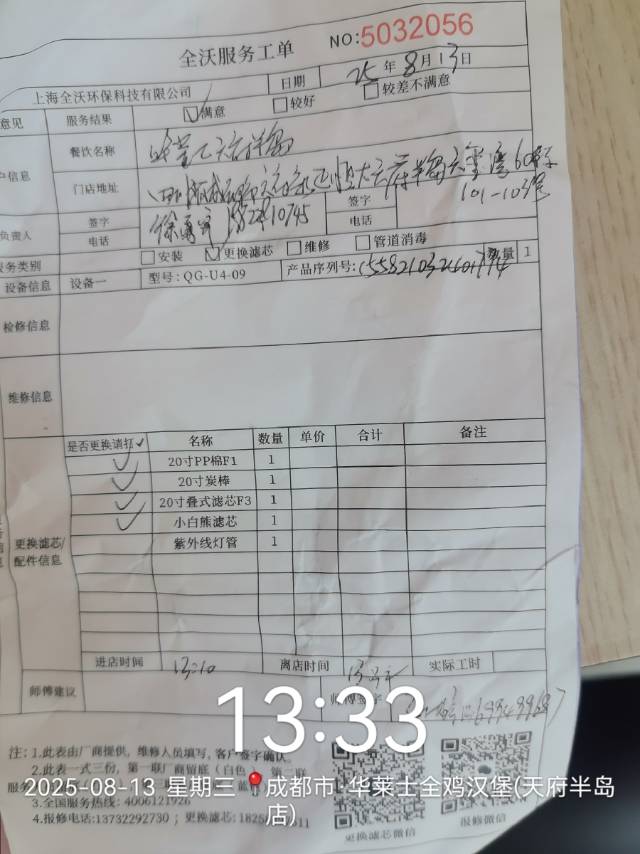 全沃服务工单
NO:5032056
上海全沃环保科技有限公司
日期
25年8月13日
意见
服务结果
满意
较好
较差不满意
餐饮名称
户信息
门店地址
60号
101-103号
负责人
签字
电话
签字
电话
服务类别
安装
更换滤芯
维修
管道消毒
设备信息
设备一
型号: QG-U4-09
产品序列号:
数量
1
检修信息
维修信息
是否更换请打✓ 名称 数量 单价 合计 备注
✓ 20寸PP棉F1 1
✓ 20寸炭棒 1
✓ 20寸叠式滤芯F3 1
✓ 小白熊滤芯 1
紫外线灯管 1
更换滤芯/
配件信息
进店时间
13:10
离店时间
实际工时
师傅建议
13:33
注: 1.此表由厂商提供，维修人员填写，客户签字确认。
2.此表一式三份，第一联厂商留底（白色）
2025-08-13 星期三 📍成都市·华莱士全鸡汉堡(天府半岛店)
3.全国服务热线: 4006121926
4.报修电话:13732292730 ; 更换滤芯: 18256
更换滤芯微信
报修微信